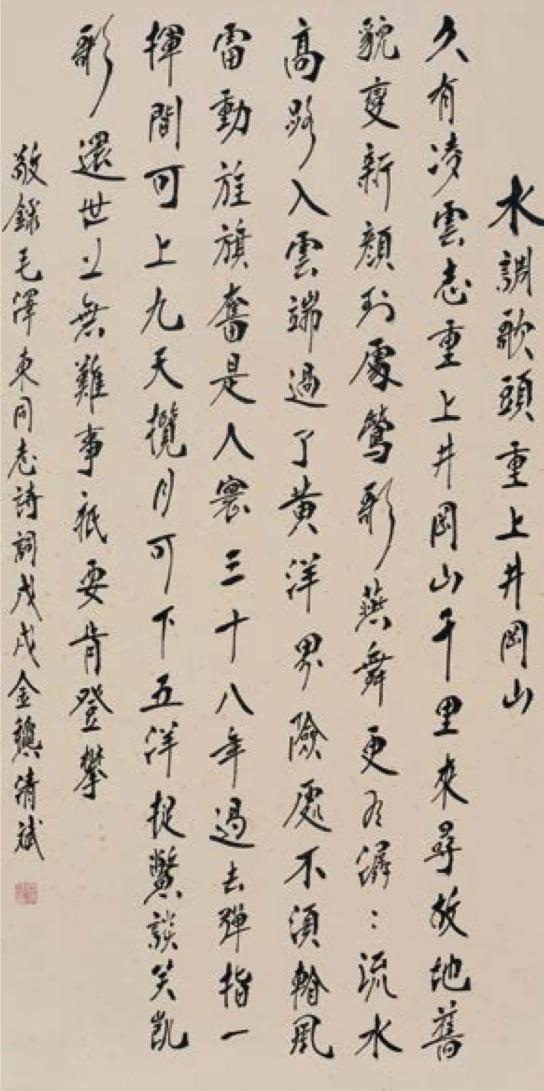 水調歌頭重上井岡山
久有凌雲志重上井岡山千里來尋故地舊
貌變新顏到處鶯歌燕舞更有潺〻流水
高路入雲端過了黃洋界險處不須看風
雷動旌旗奮是人寰三十八年過去彈指一
揮間可上九天攬月可下五洋捉鱉談笑凱
歌還世上無難事祇要肯登攀
敬錄毛澤東同志詩詞戊戌金龝清斌